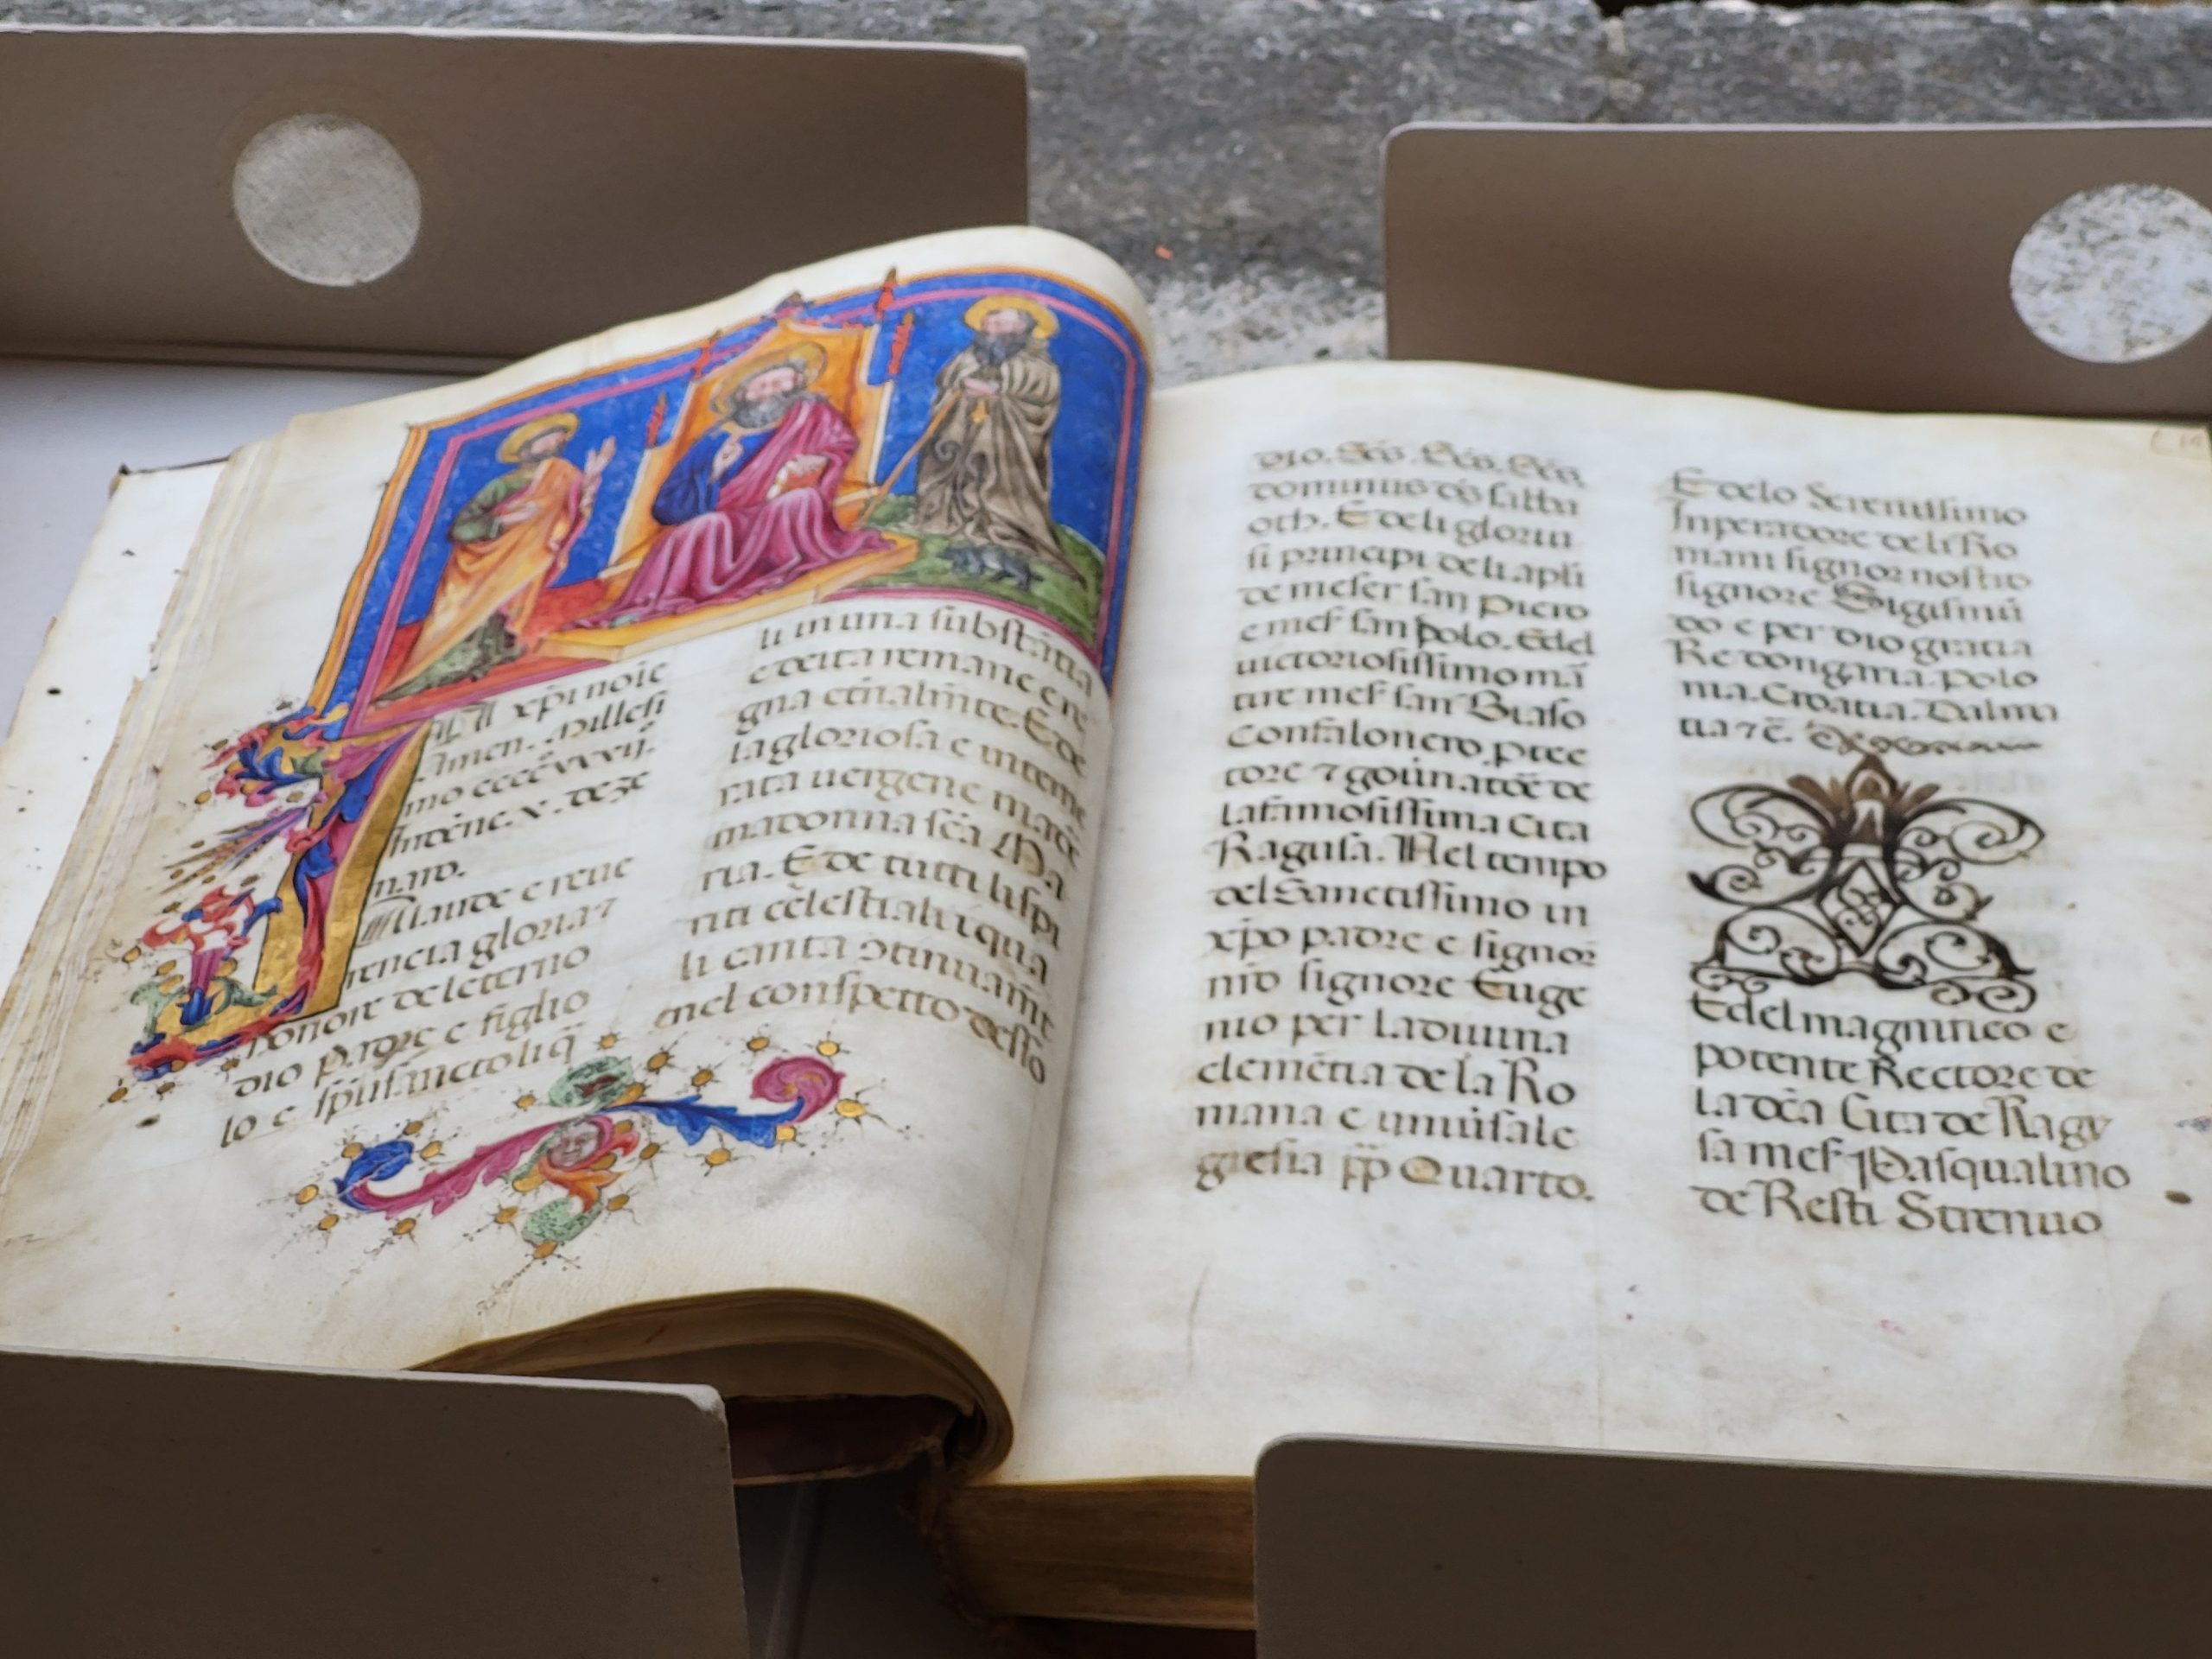 xp̄i noīe
Amen. Millesi
mo ccccxxxvij.
Indc̄ne. x. deze
naro.
laude e reue
rencia gloria ⁊
honore de leterno
dio padre e figlio
lo e sp̄usancto li q̄
li in una substātia
e deita remane e re
gna et̄nalm̄te. E de
la gloriosa e inteme
rata uergene matre
madonna sc̄a Ma
ria. E de tutti li spi
riti celestiali i qua
li canta ↄtinuam̄te
nel conspetto desso
dio. Sc̄s. Sc̄s. Sc̄s
dominus d̄s sabba
oth. E de li gloriu
si principi de li ap̄li
de meser san Piero
e mes̄ san Polo. E del
uictoriosissimo ma
tire mes̄ san Biaso
Confalonero, ꝓtec
tore ⁊ gou̅natoē de
la famosissima Cita
Ragusa. Nel tempo
del Sanctissimo in
xp̄o padre e signor
nr̄o signore Euge
nio per la diuina
clemētia de la Ro
mana e uniu̅sale
giesia pp̄ Quarto.
E delo Serenissimo
Inperadore de li Ro
mani signor nostro
signore Sigismū
do e per dio gratia
Re dongaria. Polo
nia. Croatia. Dalma
tia ⁊ c̄.
E del magnifico e
potente Rectore de
la dc̄a Cita de Ragu
sa mes̄ Pasqualino
de Resti Strenuo